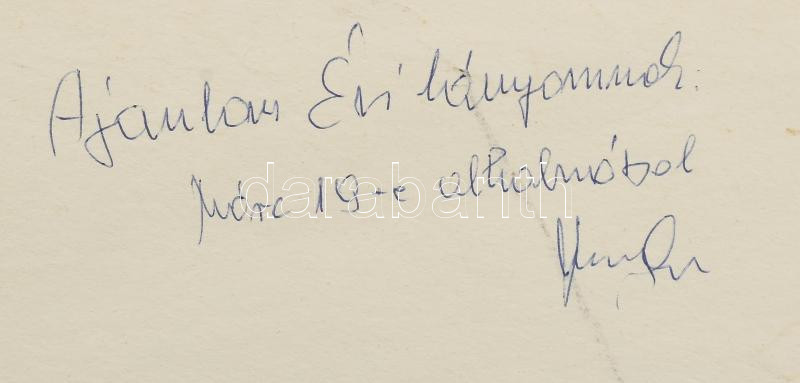 Ajánlom Évi lányomnak.
Márc 19-e alkalmából
darabanth